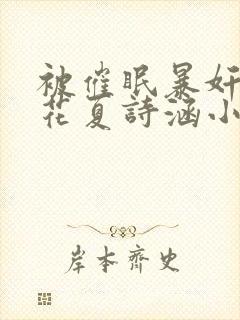 被催眠暴奸
花夏詩涵小
岸本齊史